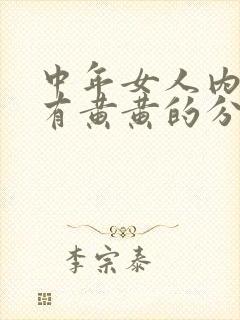 中年女人内
有黄黄的分
李宗泰